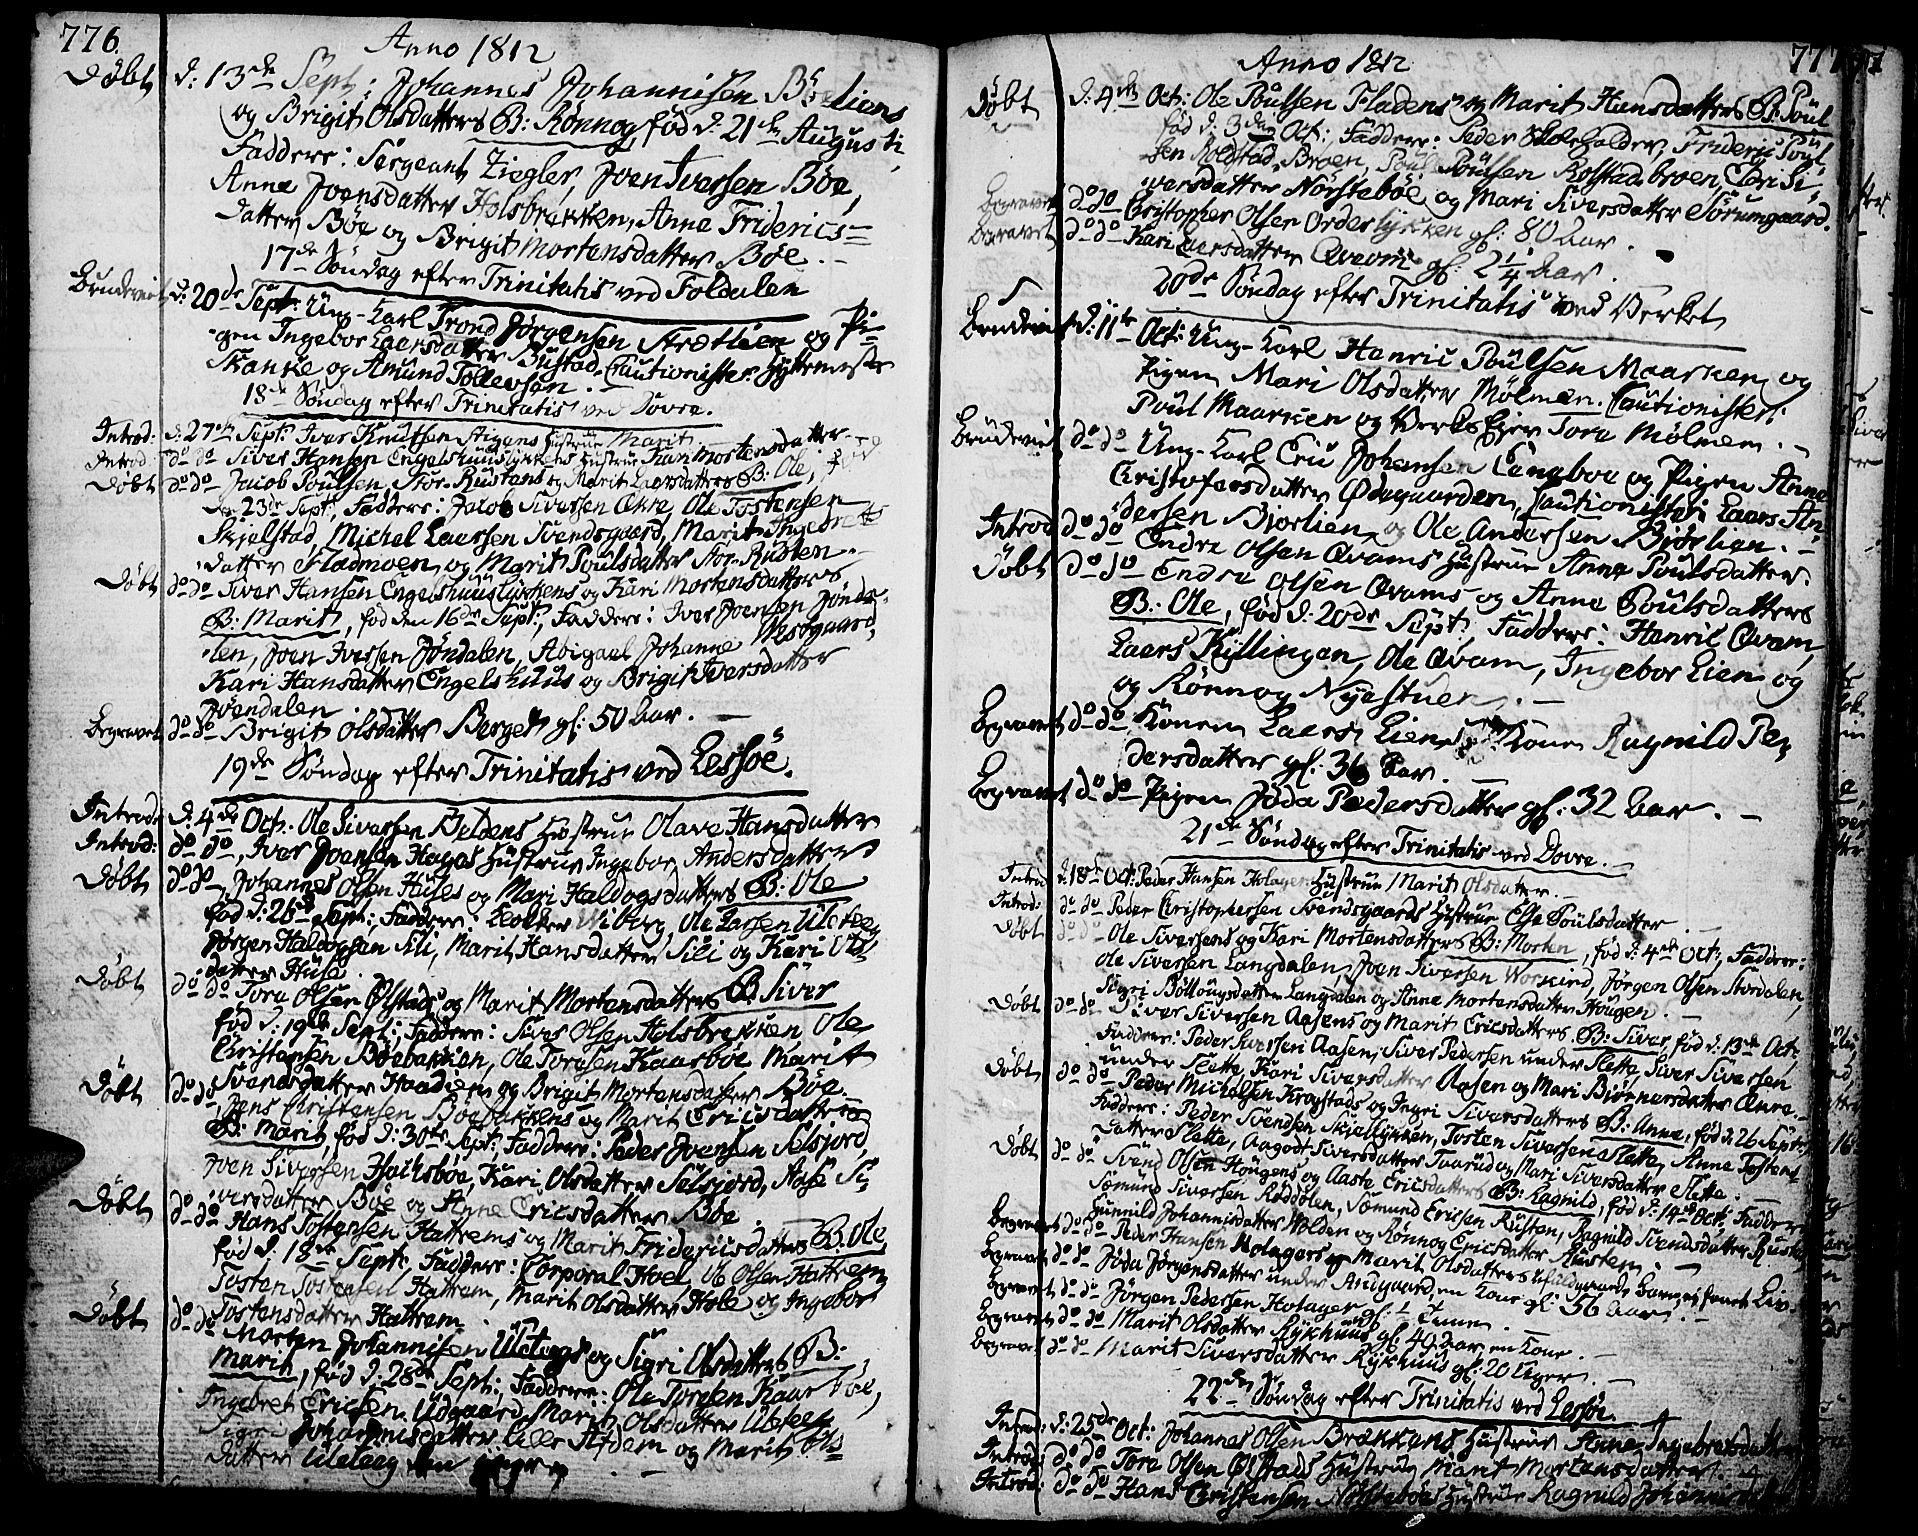 776.
Anno 1812
Døbt d: 13de Sept: Johannes Johannisen Bøeliens
og Brigit Olsdatters B: Rønnog, fød d: 21de Augusti,
Faddere: Sergeant Ziegler, Joen Iversen Böe,
Anne Joensdatter Holsbrækken, Anne Friderics-
datter Böe og Brigit Mortensdatter Böe.
17de Søndag efter Trinitatis ved Foldalen
Brudeviet d: 20de Sept: Ung-Karl Trond Jørgensen Strætlien og Pi-
gen Ingebor Laersdatter Bustad, Cautionister Hyttemester
Skanke og Amund Tollevsøn.
18de Søndag efter Trinitatis ved Dovre.
Introd: d: 27de Sept: Iver Knutsen Stigens Hustrue Marit
Introd: do do Siver Hansen Engelshuuslykkens Hustrue Kari Mortensdatter
Døbt do do Jacob Poulsen Stor-Rustens og Marit Laersdatters B: Ole, fød
den 23de Sept:, Faddere: Jacob Siversen Ekre, Ole Tostensen
Skjelstad, Michel Laersen Svendsgaard, Marit Ingebrets
datter Fladmoen og Marit Poulsdatter Stor-Rusten.
Døbt do do Siver Hansen Engelshuuslykkens og Kari Mortensdatters
B: Marit, fød den 16de Sept:, Faddere: Iver Joensen Jönda-
len, Joen Iversen Jöndalen, Abigael Johanne Westgaard,
Kari Hansdatter Engelshuus og Brigit Iversdatter
Jöendalen
Begravet do do Brigit Olsdatter Berget gl: 50 Aar.
19de Søndag efter Trinitatis ved Lessöe.
Introd: d: 4de Oct: Ole Siversen Beldens Hustrue Olave Hansdatter
Introd: do do, Iver Joensen Hagas Hustrue Ingebor Andersdatter
Døbt do do, Johannes Olsen Huses og Mari Haldogsdatters B: Ole
fød d: 26de Sept:; Faddere: Klokker Wiborg, Ole Larsen Uleleeg,
Jørgen Haldogsen Sili, Marit Hansdatter Sili og Kari Ols-
datter Huse.
Døbt do do Tore Olsen Ølstads og Marit Mortensdatters B. Siver
fød d: 19de Sept:; Faddere: Siver Olsen Holsbrekken Ole
Christensen Böebakken, Ole Toresen Kaarböe Marit
Svendsdatter Haadiem og Brigit Mortensdatter Böe.
Døbt do do Jens Christensen Böebakkens og Marit Ericsdatters
B: Marit, fød d: 30te Sept: Faddere: Peder Joensen Selsjord,
Joen Siversen Hachsböe, Kari Olsdatter Selsjord, Aase Si-
versdatter Böe og Anne Ericsdatter Böe
Døbt do do Hans Tostensen Hattrems og Marit Fridericsdatters B: Ole,
fød d: 18de Sept:, Faddere: Corporal Hoel, Ole Olsen Hattrem
Tosten Tostensen Hattrem, Marit Olsdatter Hole og Ingebor
Tostensdatter Hattrem
Døbt do do Morten Johannisen Uleleegs og Sigri Olsdatters B:
Marit, fød d: 28de Sept:, Faddere: Ole Toresen Kaarböe,
Ingebret Ericsen Udgaard, Marit Olsdatter Uleleeg
Sigri Johannisdatter Lille og Marit Ols-
datter Uleleeg
777
Anno 1812
Døbt d: 4de Oct: Ole Poulsen Fladens og Marit Hansdatters B: Poul
fød d: 3die Oct: Faddere: Peder Skoleholder, Frideric Poul
sen Rolstad Broen, Poul Poulsen Rolstadbroen, Kari Si-
versdatter Nörsteböe og Mari Siversdatter Sörumgaard.
Begravet do do Christopher Olsen Orderlykken gl: 80 Aar.
Begravet do do Kari Laersdatter Qvam gl: 2 1/4 Aar.
20de Søndag efter Trinitatis ved Verket
Brudeviet d: 11te Oct: Ung-Karl Henric Poulsen Maarken og
Pigen Mari Olsdatter Mølmen. Cautionister:
Poul Maarken og Verks Ejer Tore Mølmen.
Brudeviet do do Ung-Karl Eric Johansen Langboe og Pigen Anne
Christofersdatter Ødegaarden, Cautionister: Laers An-
dersen Bjorlien og Ole Andersen Bjorlien.
Introd do do Endre Olsen Qvams Hustrue Anne Poulsdatter.
Døbt do do Endre Olsen Qvams og Anne Poulsdatters
B: Ole, fød d: 20de Sept:, Faddere: Henric Qvam,
Laers Killingen, Ole Qvam, Ingebor Lien og
og Rønnog Nyestuen.
Begravet do do Konen Laers Liens Kone Ragnild Pe-
dersdatter gl: 36 Aar.
Begravet do do Pigen Jöda Pedersdatter gl: 32 Aar.
21de Søndag efter Trinitatis ved Dovre.
Introd d: 18de Oct: Peder Hansen Holagers Hustrue Marit Olsdatter.
Introd: do do Peder Christophersen Svendsgaards Hustrue Else Poulsdatter
Døbt do do Ole Siversens og Kari Mortensdatters B: Morten, fød d: 4de Oct:, Faddere:
Ole Siversen Langdalen, Joen Siversen Workind, Jörgen Olsen Stordalen,
Sigri Böttougsdatter Langdalen og Anne Mortensdatter Hougen.
Døbt do do Siver Siversen Aasens og Marit Ericsdatters B: Siver, fød d: 13de Oct,
Faddere: Peder Siversen Aasen, Siver Pedersen under Slette, Siver Siversen
under Slette, Kari Siversdatter Aasen og Mari Biörnersdatter Ekre.
Døbt do do Peder Michelsen Kragstads og Ingri Siversdatters B: Anne, fød d: 26 Sept:,
Faddere: Peder Svendsen Skjellykken, Tosten Siversen Slette, Anne Tostens-
datter Slette, Aagot Siversdatter Taarud og Mari Siversdatter Slette.
Døbt do do Svend Olsen Hougens og Aaste Ericsdatters B: Ragnild, fød d: 14de Oct: Faddere:
Sömund Siversen Röddölen, Sömund Ericsen Rusten, Ragnild Svendsdatter Rusten,
Gunnild Johannisdatter Wolden og Rønnog Ericsdatter Rusten.
Begravet do do Peder Hansen Holagers og Marit Olsdatters
Begravet do do Jöda Jörgensdatter under Andgaard, en Kone gl: 56 Aar.
Begravet do do Jörgen Pedersen Holager gl: 1 Time.
Begravet do do Marit Olsdatter Rykhuus gl: 49 Aar, en Kone.
Begravet do do Marit Siversdatter Rykhuus gl: 20 Uger.
22de Søndag efter Trinitatis ved Lessöe.
Introd: d: 25de Oct: Johannes Olsen Brækkens Hustrue Anne Ingebretsdatter
Introd: do do Tore Olsen Ølstads Hustrue Marit Mortensdatter
Introd: do do Hans Christensen Nörsteböes Hustrue Ragnild